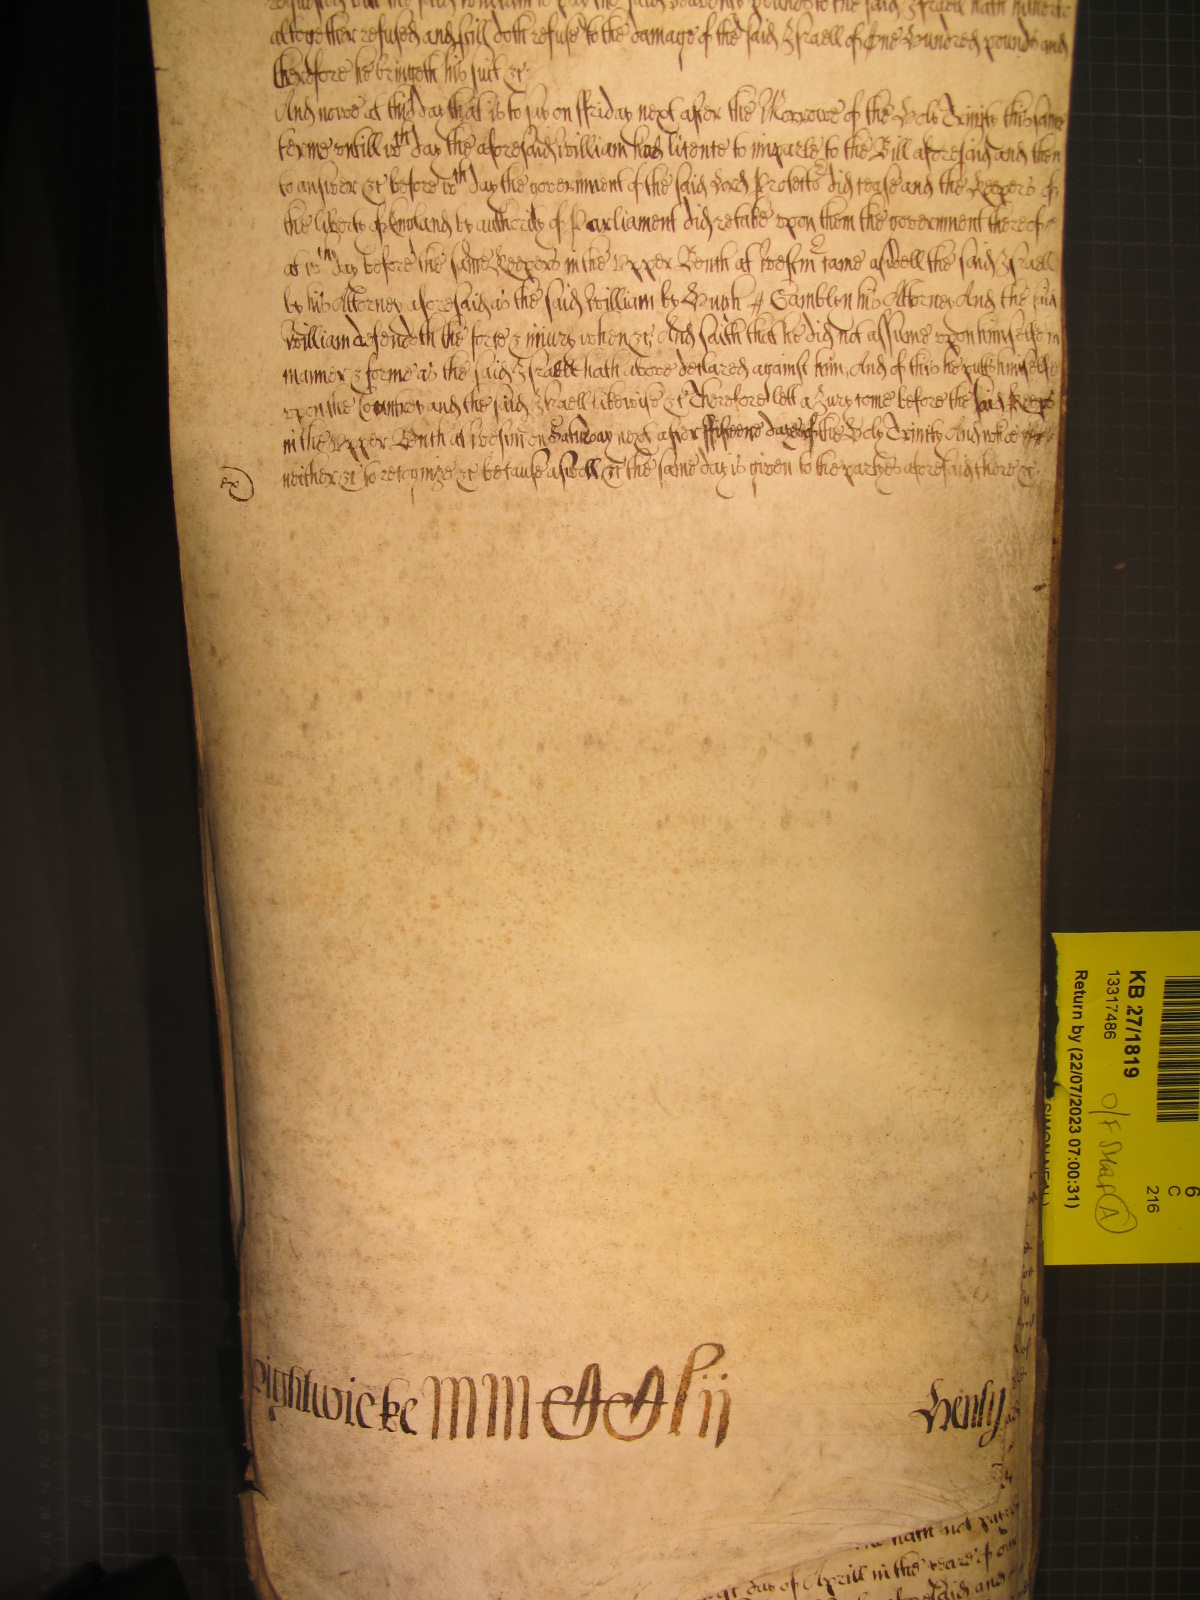 altogether refused and still doth refuse to the damage of the said Israell of One Hundred pounds and
therefore he bringeth his suit &c
And nowe at this day that is to say on ffriday next after the Morrowe of the Holy Trinity this same
terme untill wch day the aforesaid William had licence to imparle to the Bill aforesaid and then
to answer &c before wch day the government of the said Lord Protector did cease and the Keepers of
the liberty of England by authority of Parliament did retake upon them the government thereof
at wch day before the same Keepers in the Upper Bench at Westmr came aswell the said Israell
by his Attorney aforesaid as the said William by Hugh Hamblyn his Attorney And the said
William defendeth the force & iniury when &c And saith that he did not assume upon himselfe in
manner & forme as the said Israell hath above declared against him, And of this he putts himselfe
upon the Countrey and the said Israell likewise &c Therefore lett a Jury come before the said Keeps
in the Upper Bench at Westm on Saturday next after ffifteene dayes of the Holy Trinity And who
neither &c to recognize &c because aswell &c the same day is given to the partyes aforesaid there &c
ex
wightwicke MMCClii
Henly
hath not
day of Aprill in the yeare of our
aforesaid and
KB 27/1819
13317486
Return by (22/07/2023 07:00:31)
SIMON NEAL)
O/F
A
6
C
216